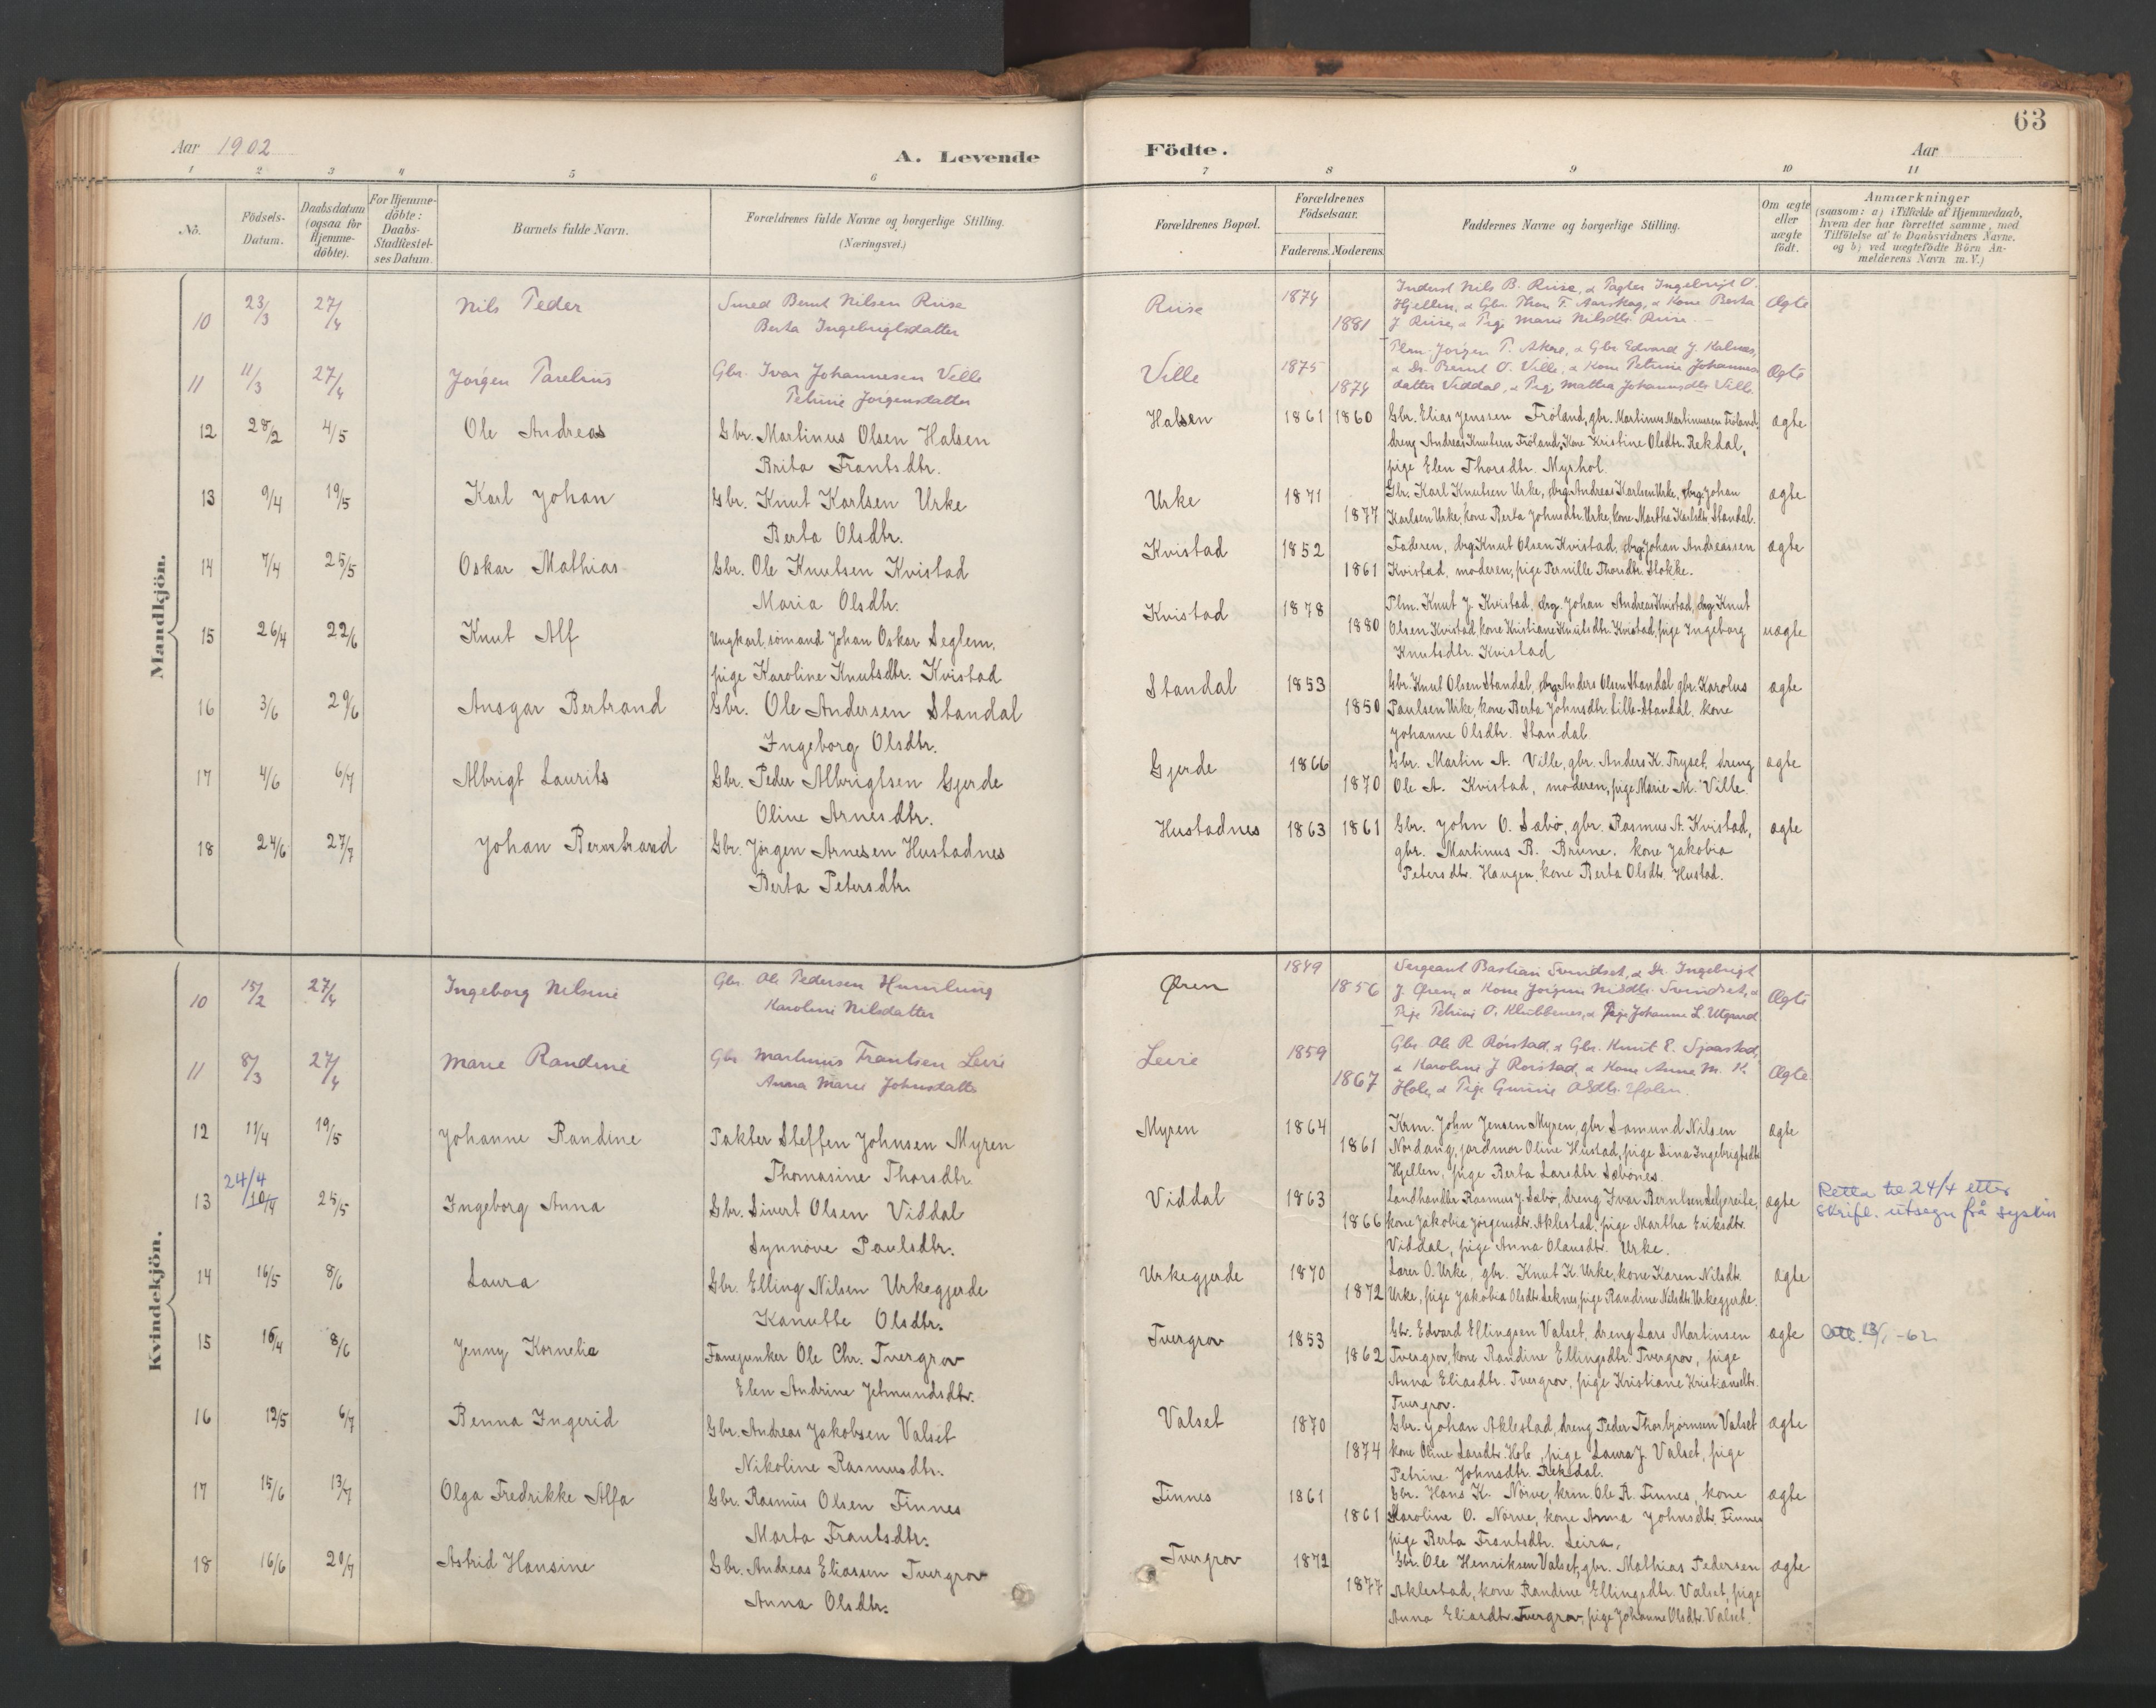 63
Aar 1902
A. Levende Födte.
Aar
1 2 3 4 5 6 7 8 9 10 11
Nö.
Födsels-Datum.
Daabsdatum (ogsaa for Hjemme-döbte).
For Hjemme-döbte: Daabs-Stadfæstel-ses Datum.
Barnets fulde Navn.
Forældrenes fulde Navne og borgerlige Stilling. (Næringsvei.)
Forældrenes Bopæl.
Forældrenes Födselsaar.
Faderens. Moderens.
Faddernes Navne og borgerlige Stilling.
Om ægte eller uægte födt.
Anmærkninger
(saasom: a) i Tilfælde af Hjemmedaab, hvem der har forrettet samme, med Tilföielse af to Daabsvidners Navne, og b) ved uægtefödte Börn An-melderens Navn m. V.)
Mandkjön.
10 23/3 27/4 Nils Peder Smed Bernt Nilsen Riise Riise 1874 Inderst Nils B. Riise, & Pagter Ingebrigt O. Ægte
Berta Ingebrigtsdatter 1881 Hjellen, & Gbr. Thom T. Aarskog, & Kone Berta
J Riise, & Pige Marie Nilsdtr. Riise.
11 11/3 27/4 Jørgen Parelius Gbr. Ivar Johannesen Ville Ville 1875 Plm. Jørgen P. Akre, & Gbr Edvard J. Kalnes, Ægte
Petrine Jørgensdatter 1874 & Dr. Bernt O. Ville, & Kone Petrine Johannes
datter Viddal, & Pige Mathea Johannsdtr Ville.
12 28/2 4/5 Ole Andreas Gbr. Martinus Olsen Halsen Halsen 1861 1860 Gbr. Elias Jenssen Fröland, gbr. Martinus Martinussen Fröland, ægte
Brita Frantsdtr. dreng Andreas Knutsen Fröland, Kone Kristine Olsdtr. Rekdal,
pige Elen Thorsdtr. Myrhol.
13 9/4 19/5 Karl Johan Gbr. Knut Karlsen Urke Urke 1871 Gbr. Karl Knutsen Urke, drg. Andreas Karlsen Urke, drg. Johan ægte
Berta Olsdtr. 1877 Karlsen Urke, kone Berta Johnsdtr. Urke, kone Martha Karlsdtr. Standal.
14 7/4 25/5 Oskar Mathias Gbr. Ole Knutsen Kvistad Kvistad 1852 Faderen, drg. Knut Olsen Kvistad, drg. Johan Andreassen ægte
Maria Olsdtr. 1861 Kvistad, moderen, pige Pernille Thorsdtr. Stokke.
15 26/4 22/6 Knut Alf Ungkarl, sömand Johan Oskar Seglem, Kvistad 1878 Plm. Knut J. Kvistad, drg. Johan Andreas Kvistad, drg. Knut uægte
pige Karoline Knutsdtr. Kvistad 1880 Olsen Kvistad, kone Kristiane Knutsdtr. Kvistad, pige Ingeborg
Knutsdtr. Kvistad
16 3/6 29/6 Ansgar Bertrand Gbr. Ole Andersen Standal Standal 1853 Gbr. Knut Olsen Standal, drg. Anders Olsen Standal, gbr. Karolus ægte
Ingeborg Olsdtr. 1850 Paulsen Urke, kone Berta Johnsdtr. Lille-Standal, kone
Johanne Olsdtr. Standal
17 4/6 6/7 Albrigt Laurits Gbr. Peder Albrigtsen Gjerde Gjerde 1866 Gbr. Martin A. Ville, gbr. Anders K. Tryset, dreng ægte
Oline Arnesdtr. 1870 Ole A. Kvistad, moderen, pige Marie M. Ville.
18 24/6 27/7 Johan Bernstrand Gbr. Jörgen Arnesen Hustadnes Hustadnes 1863 1861 Gbr. John O. Sæbö, gbr. Rasmus A. Kvistad, ægte
Berta Petersdtr. gbr. Martinus B. Brune. kone Jakobia
Petersdtr. Haugen, kone Berta Olsdtr. Hustad.
Kvindekjön.
10 15/2 27/4 Ingeborg Nilsine Gbr. Ole Pedersen Humlung Øren 1849 Sergeant Bastian Svendset, & Dr. Ingebrigt Ægte
Karoline Nilsdatter 1856 J. Øren, & Kone Jørgine Nilsdtr. Svendset, &
Pige Petrine O. Klubbenes, & Pige Johanne L. Utgaard
11 8/3 27/4 Marie Randine Gbr Martinus Frantsen Leire Leire 1859 Gbr. Ole R. Rörstad, & Gbr. Knut E. Sjaastad, Ægte
Anna Marie Johnsdatter 1867 & Karoline J Rörstad, & Kone Anne M. K.
Hole, & Pige Gurine Olsdtr. Holen.
12 11/4 19/5 Johanne Randine Pakter Steffen Johnsen Myren Myren 1864 Krm. John Jensen Myren, gbr Samund Nilsen ægte
Thomasine Thorsdtr 1861 Nordang, jordmor Oline Hustad, pige Dina Ingebrigtsdtr
Hjellen, pige Berta Larsdtr. Sæbönes.
24/4
13 10/4 25/5 Ingeborg Anna Gbr. Sivert Olsen Viddal Viddal 1863 Landhandler Rasmus J. Sæbö, dreng Ivar Berntsen Lefsreite, ægte Retta til 24/4 etter
Synnöve Paulsdtr. 1866 kone Jakobia Jörgensdtr. Aklestad, pige Martha Eriksdtr. skrifl. utsegn frå syskin
Viddal, pige Anna Olausdtr. Urke.
14 16/5 8/6 Laura Gbr. Elling Nilsen Urkegjerde Urkegjerde 1870 Lærer O. Urke, gbr. Knut K. Urke, kone Karen Nilsdtr. ægte
Kanutte Olsdtr. 1872 Urke, pige Jakobia Olsdtr. Leknes, pige Randine Nilsdtr. Urkegjerde.
15 16/4 8/6 Jenny Kornelia Fanejunker Ole Chr. Tvergrov Tvergrov 1853 Gbr. Edvard Ellingsen Valset, dreng Lars Martinsen ægte Att. 13/1 -62
Elen Andrine Jetmundsdtr. 1862 Tvergrov, kone Randine Ellingsdtr. Tvergrov, pige
Anna Eliasdtr. Tvergrov, pige Kristiane Kristiansdtr.
Tvergrov.
16 12/5 6/7 Benna Ingerid Gbr. Andreas Jakobsen Valset Valset 1870 Gbr. Johan Aklestad, dreng Peder Thorbjörnsen Valset ægte
Nikoline Rasmusdtr. 1874 kone Oline Larsdtr. Hole, pige Laura J. Valset, pige
Petrine Johnsdtr. Rekdal.
17 15/6 13/7 Olga Fredrikke Alfa Gbr. Rasmus Olsen Finnes Finnes 1861 Gbr. Hans K. Nörve, krm. Ole R. Finnes, kone ægte
Marta Frantsdtr. 1861 Karoline O. Nörve, kone Anna Johnsdtr. Finnes
pige Berta Frantsdtr. Leira.
18 16/6 20/7 Astrid Hansine Gbr. Andreas Eliassen Tvergrov Tvergrov 1872 Gbr. Ole Henriksen Valset, gbr. Mathias Pedersen ægte
Anna Olsdtr. 1877 Aklestad, kone Randine Ellingsdtr. Valset, pige
Anna Eliasdtr. Tvergrov, pige Johanne Olsdtr. Valset.